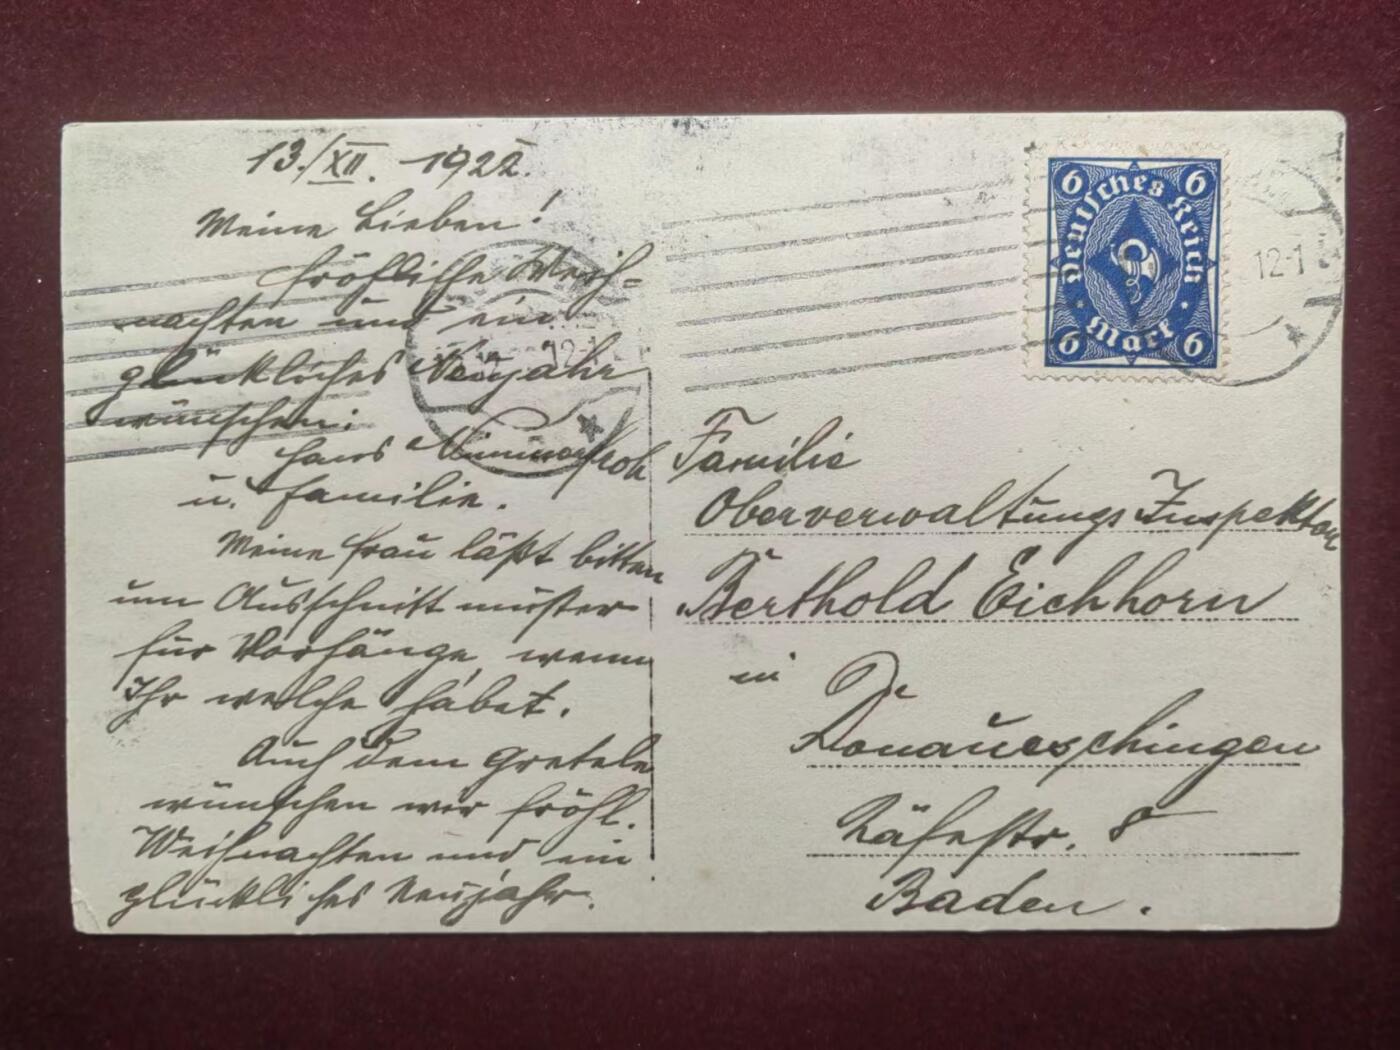 13./XII. 1922.
Meine Lieben!
Fröhliche Weih-
nachten und ein
glückliches Neujahr
wünschen:
Hans
u. Familie.
Meine Frau läßt bitten
um Ausschnittmuster
für Vorhänge, wenn
Ihr welche habet.
Auch dem Gretele
wünschen wir fröhl.
Weihnachten und ein
glückliches Neujahr.
6 6
Deutsches Reich
Mark
6 6
12-1
12-1
Familie
Oberverwaltungs Inspektor
Berthold Eichhorn
in
Donaueschingen
8
Baden.